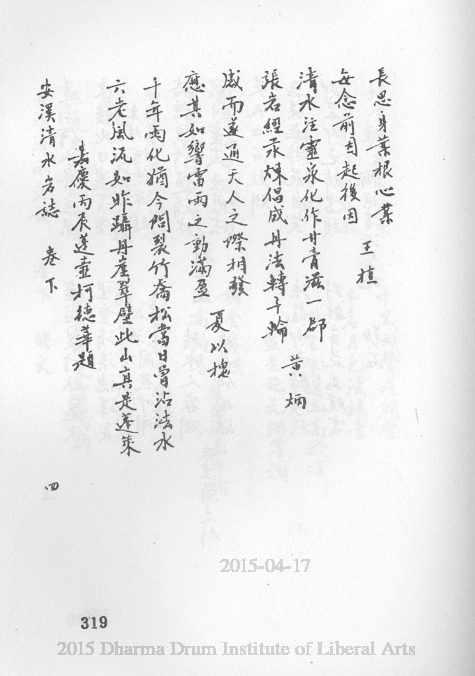 長思身業根心業
每念前因起後因 王植
清水注靈泉化作甘膏滋一郡
張岩經永棘倡成丹法轉千輪 黃炳
感而遂通天人之際相發
應其如響雷雨之動滿盈 夏以槐
十年雨化猶今問裂竹喬松當日曾沾法水
六老風流如昨躡丹崖翠壁此山真是蓬萊
嘉慶丙辰蓬壺柯德華題
安溪清水岩誌 卷下 四
2015-04-17
319
2015 Dharma Drum Institute of Liberal Arts